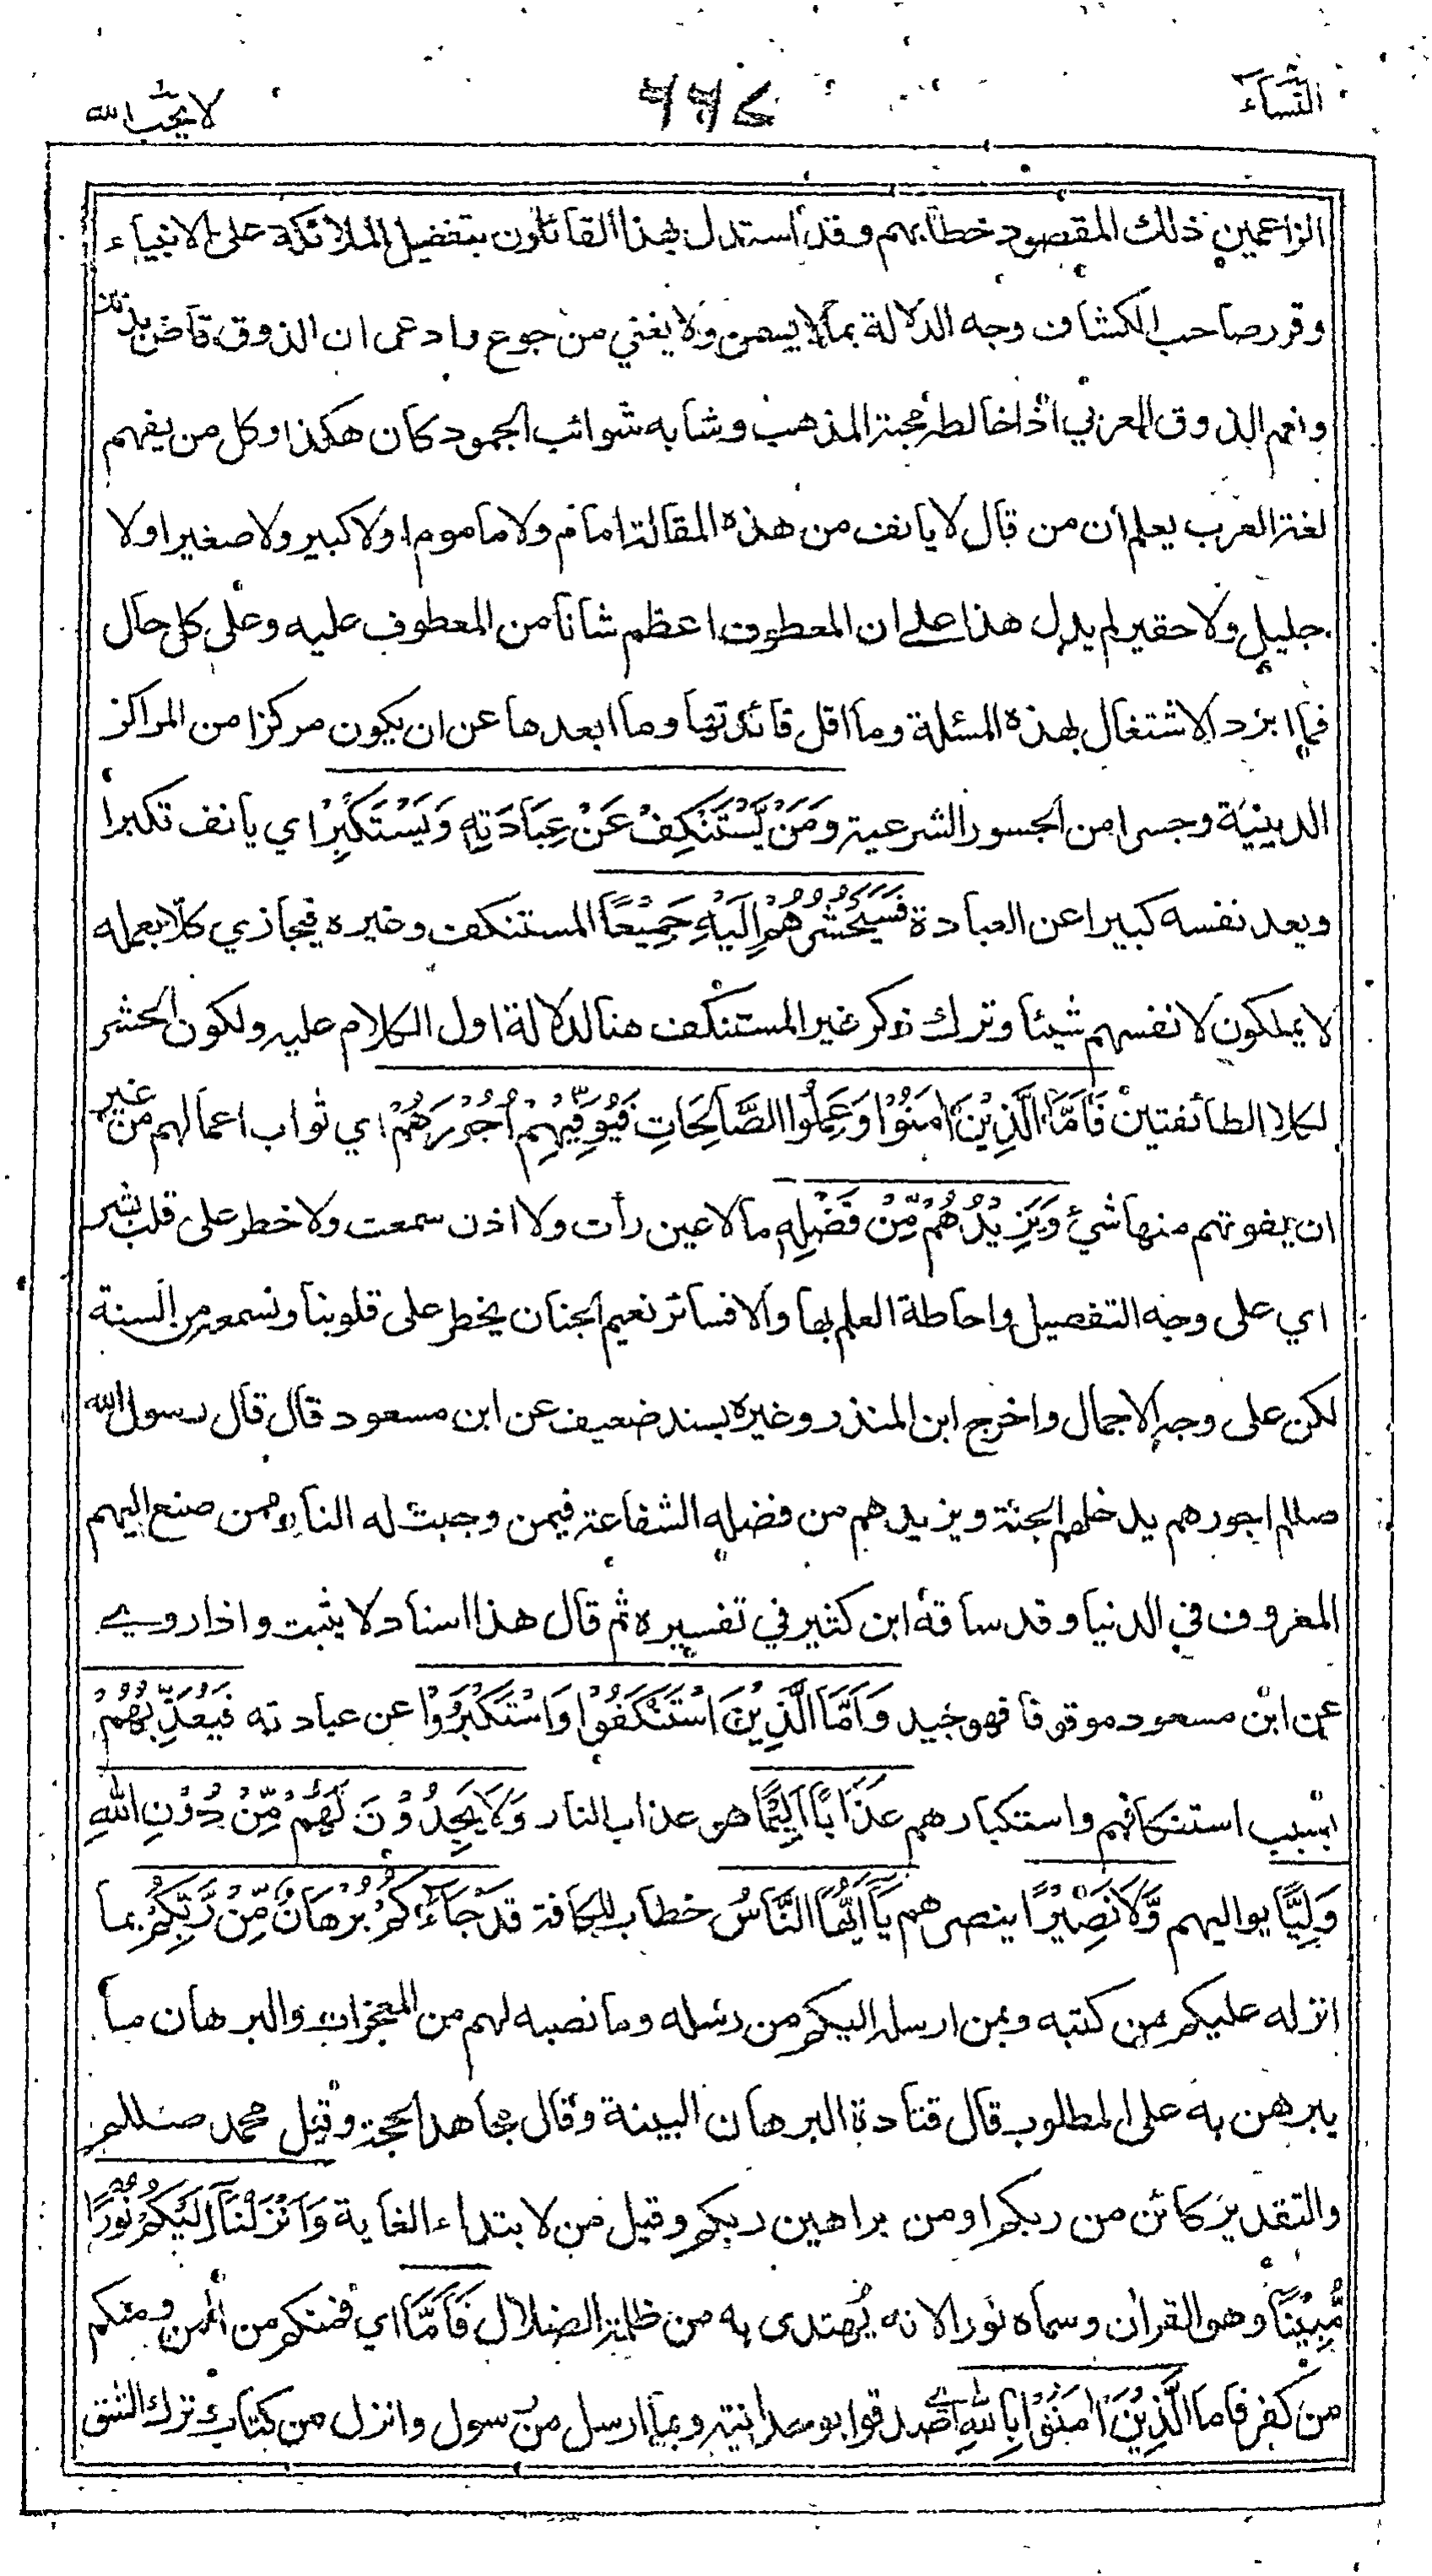 النسآء
٦٦٤
لا يحب الله
الزاعمين ذلك المقصود خطابهم وقد استدل بهذا القائلون بتفضيل الملائكة على الانبياء
وقرر صاحب الكشاف وجه الدلالة بما لا يسمن ولا يغني من جوع وادعى ان الذوق قاض بذلك
ونعم الذوق العربي اذا خالطه محبة المذهب وشابه شوائب الجمود كان هكذا وكل من يفهم
لغة العرب يعلم أن من قال لا يانف من هذه المقالة امام ولا ماموم او لا كبير ولا صغير او لا
جليل ولا حقير لم يدل هذا على ان المعطوف اعظم شانا من المعطوف عليه وعلى كل حال
فما ابرد الاشتغال بهذه المسئلة وما اقل فائدتها وما ابعدها عن ان يكون مركزا من المراكز
الدينية وجسرا من الجسور الشرعية وَمَنْ يَّسْتَنْكِفْ عَنْ عِبَادَتِهٖ وَيَسْتَكْبِرْ اي يانف تكبرا
ويعد نفسه كبيرا عن العبادة فَسَيَحْشُرُهُمْ اِلَيْهِ جَمِيْعًا المستنكف وغيره فيجازي كلا بعمله
لا يملكون لانفسهم شيئا وترك ذكر غير المستنكف هنا لدلالة اول الكلام عليه ولكون الحشر
لكلا الطائفتين فَاَمَّا الَّذِيْنَ اٰمَنُوْا وَعَمِلُوا الصَّالِحَاتِ فَيُوَفِّيْهِمْ اُجُوْرَهُمْ اي ثواب اعمالهم من غير
ان يفوتهم منها شيئ وَيَزِيْدُهُمْ مِّنْ فَضْلِهٖ ما لا عين رأت ولا اذن سمعت ولا خطر على قلب بشر
اي على وجه التفصيل واحاطة العلم بها والا فسائر نعيم الجنان يخطر على قلوبنا ونسمعه من السنة
لكن على وجه الاجمال واخرج ابن المنذر وغيره بسند ضعيف عن ابن مسعود قال قال رسول الله
صللم اجورهم يدخلهم الجنة ويزيدهم من فضله الشفاعة فيمن وجبت له النار ممن صنع اليهم
المعروف في الدنيا وقد ساقه ابن كثير في تفسيره ثم قال هذا اسناد لا يثبت واذا روي
عن ابن مسعود موقوفا فهو جيد وَاَمَّا الَّذِيْنَ اسْتَنْكَفُوْا وَاسْتَكْبَرُوْا عن عبادته فَيُعَذِّبُهُمْ
بسبب استنكافهم واستكبارهم عَذَابًا اَلِيْمًا هو عذاب النار وَلَا يَجِدُوْنَ لَهُمْ مِّنْ دُوْنِ اللّٰهِ
وَلِيًّا يواليهم وَّلَا نَصِيْرًا ينصرهم يَآ اَيُّهَا النَّاسُ خطاب للكافة قَدْ جَآءَكُمْ بُرْهَانٌ مِّنْ رَّبِّكُمْ بما
انزله عليكم من كتبه وبمن ارسله اليكم من رسله وما نصبه لهم من المعجزات والبرهان ما
يبرهن به على المطلوب قال قتادة البرهان البينة وقال مجاهد الحجة وقيل محمد صللم
والتقدير كائن من ربكم او من براهين ربكم وقيل من لابتداء الغاية وَاَنْزَلْنَآ اِلَيْكُمْ نُوْرًا
مُّبِيْنًا وهو القران وسماه نورا لانه يُهتدى به من ظلمة الضلال فَاَمَّا اي فمنكم من اٰمن ومنكم
من كفر فاما الَّذِيْنَ اٰمَنُوْا بِاللّٰهِ اي صدقوا بوحدانيته وبما ارسل من رسول وانزل من كتاب ترك الشق